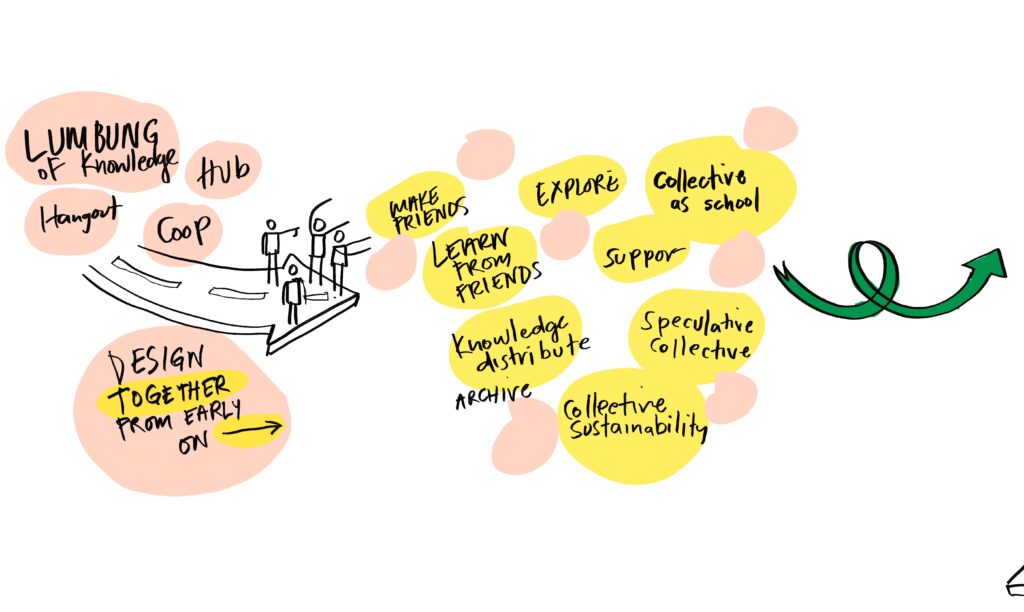 LUMBUNG
OF Knowledge
HUB
Hangout
COOP
DESIGN
TOGETHER
FROM EARLY
ON
MAKE
FRIENDS
LEARN
FROM
FRIENDS
EXPLORE
Collective
as school
SUPPOR
Knowledge
distribute
ARCHIVE
Speculative
Collective
Collective
Sustainability